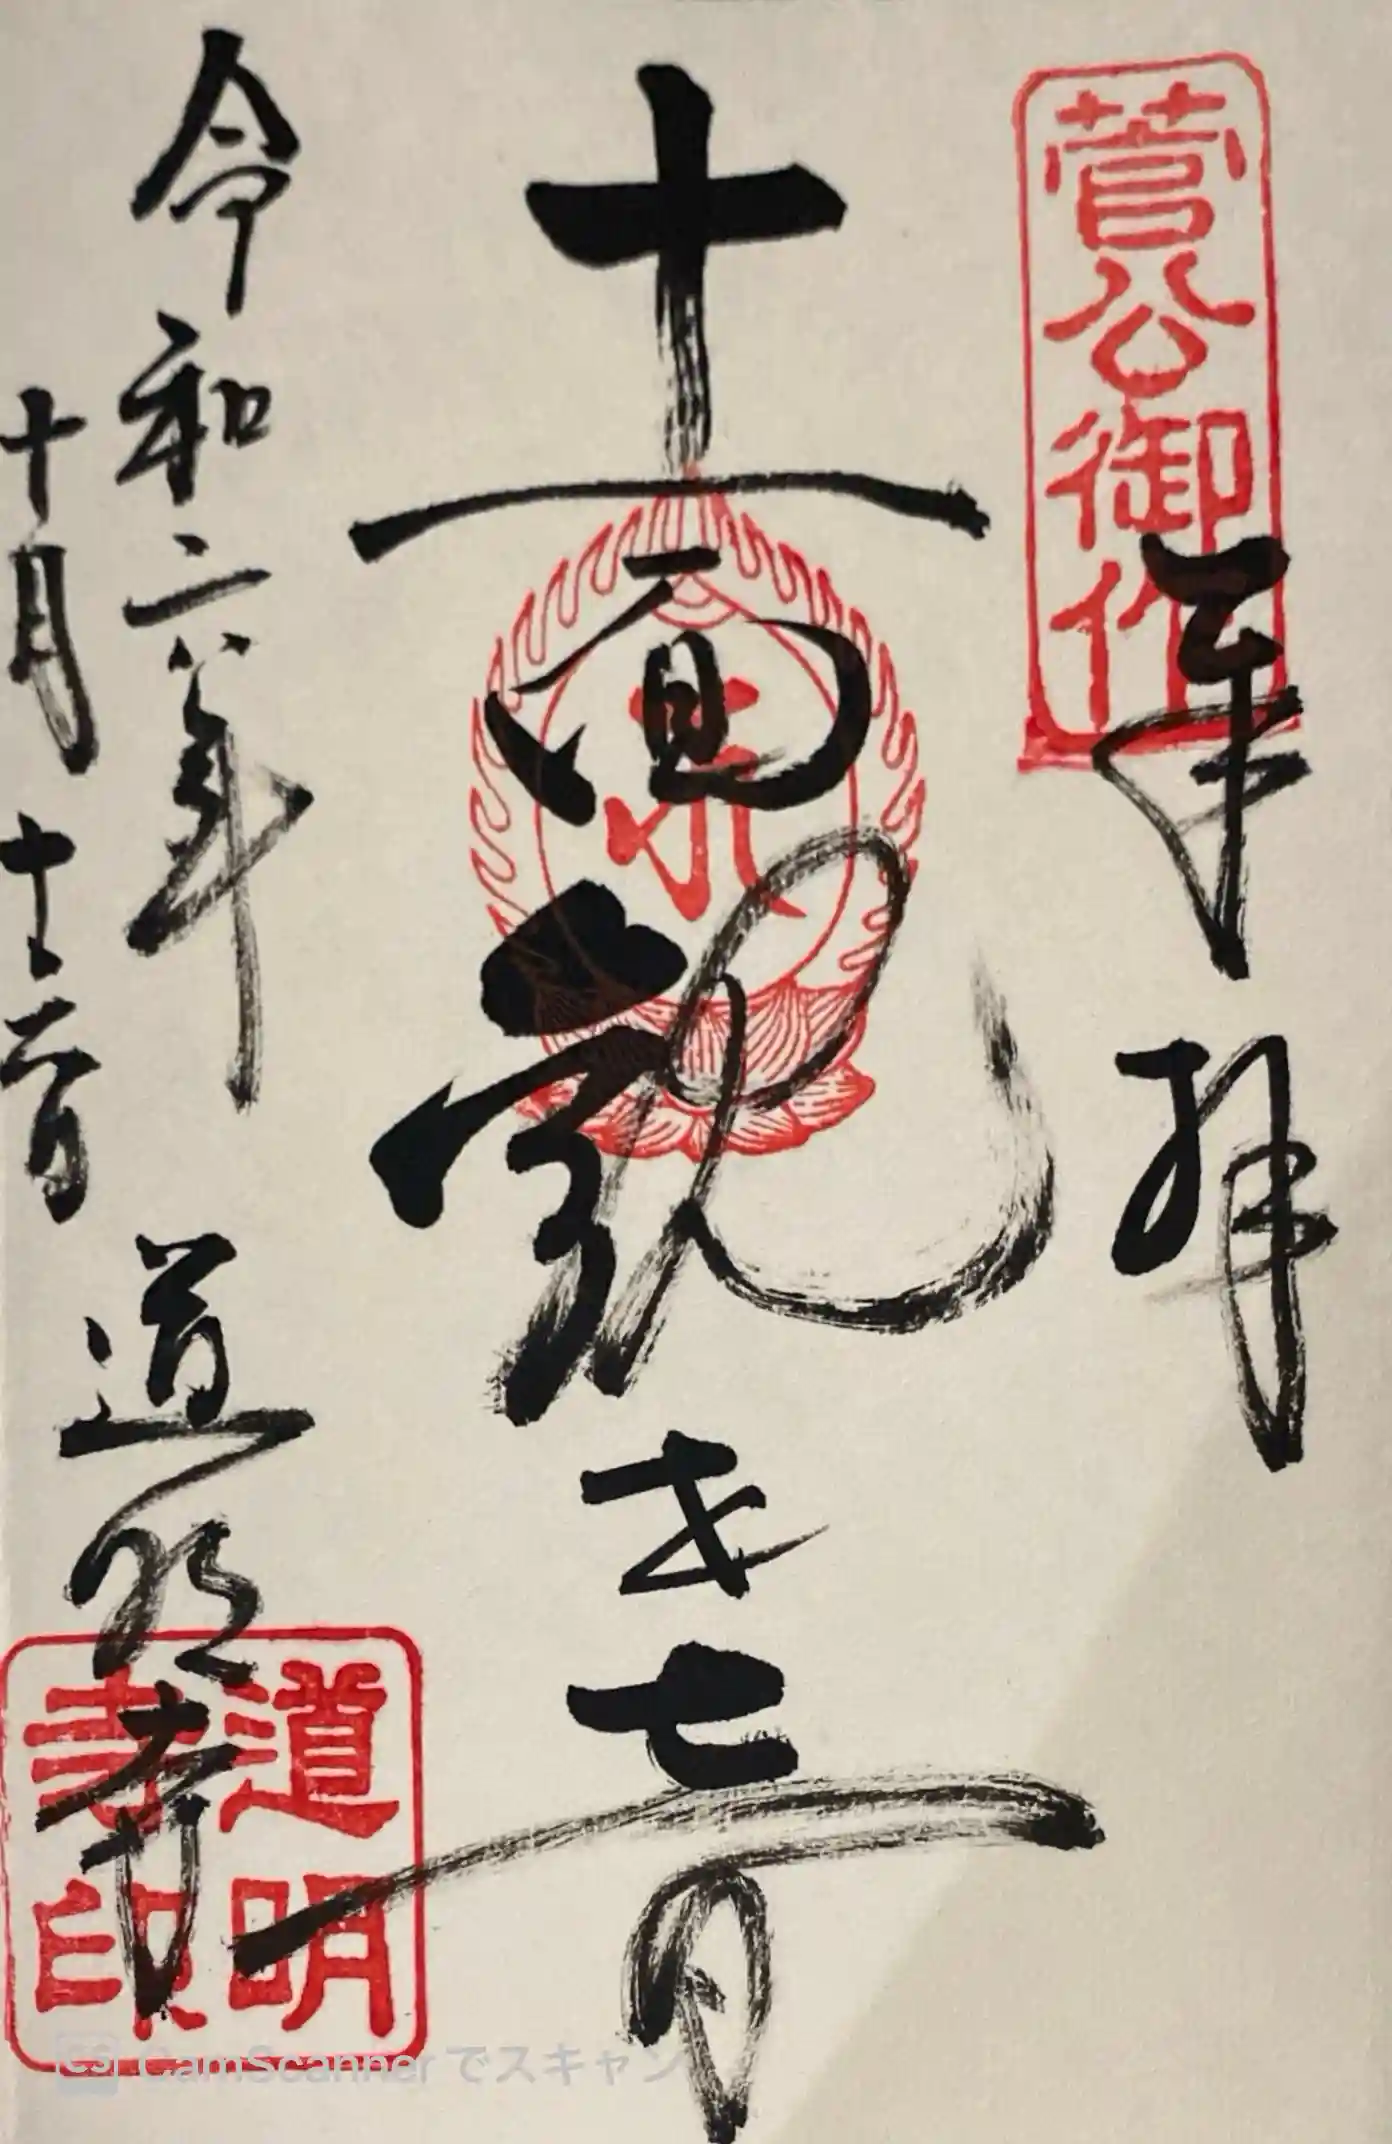 菅公御作
奉拝
十一面観世音
令和六年
十月十二日
道明寺
道明寺印
CamScannerでスキャン